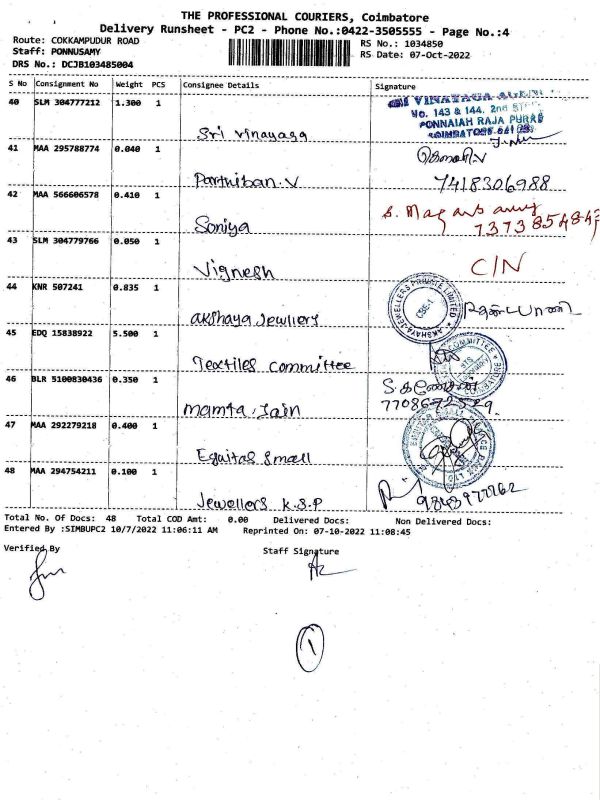 THE PROFESSIONAL COURIERS, Coimbatore
Delivery Runsheet - PC2 - Phone No.:0422-3505555 - Page No.:4
Route: COKKAMPUDUR ROAD
Staff: PONNUSAMY
DRS No.: DCJB103485004
RS No.: 1034850
RS Date: 07-Oct-2022
S No Consignment No Weight PCS Consignee Details Signature
40 SLM 304777212 1.300 1
Sri vinayaga
VINAYAGA
No. 143 & 144, 2nd
PONNAIAH RAJA PURAM
COIMBATORE-641
41 MAA 295788774 0.040 1
Parthiban.V
7418306988
42 MAA 566606578 0.410 1
Soniya
43 SLM 304779766 0.050 1
Vignesh
C/N
44 KNR 507241 0.835 1
akshaya Jewllery
AKSHAYA JEWELLERS PRIVATE LIMITED
CBE-1
45 EDQ 15838922 5.500 1
Textiles committee
COMMITTEE
46 BLR 5100830436 0.350 1
mamta.Jain
47 MAA 292279218 0.400 1
Equitas small
48 MAA 294754211 0.100 1
Jewellers K.S.P
Total No. Of Docs: 48 Total COD Amt: 0.00 Delivered Docs: Non Delivered Docs:
Entered By :SIMBUPC2 10/7/2022 11:06:11 AM Reprinted On: 07-10-2022 11:08:45
Verified By
Staff Signature
1